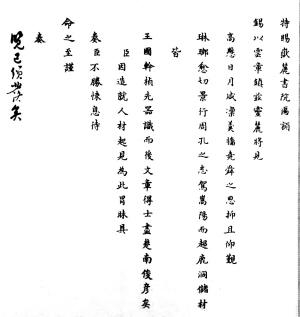 特賜嶽麓書院匾額
錫以雲章鎮茲靈麓將見
高懸日月咸深美牆堯舜之思抑且仰觀
琳瑯愈切景行周孔之志駕嵩陽而超鹿洞儲材
皆
王國幹楨先器識而後文章得士盡楚南俊彥矣
臣因造就人材起見為此冒昧具
奏臣不勝悚息待
命之至謹
奏
覽已頒發矣